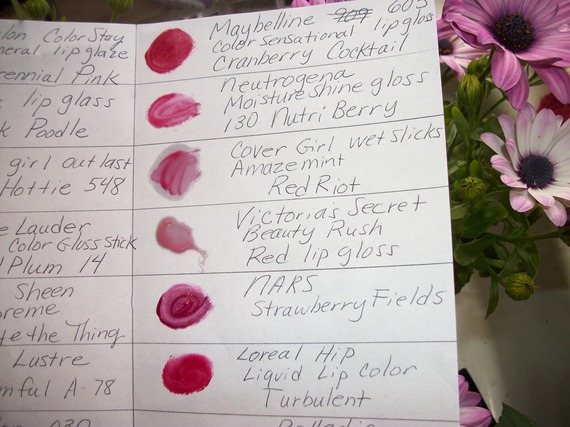 Color Stay
lip glaze
Pink
lip glass
Poodle
girl outlast
Hottie 548
Lauder
Color Gloss Stick
Plum 14
Sheen
the Thing
Lustre
A-78
Maybelline 605
Color Sensational lipgloss
Cranberry Cocktail
neutrogena
Moistureshine gloss
130 Nutri Berry
Cover Girl wetslicks
Amazemint
Red Riot
Victoria's Secret
Beauty Rush
Red lip gloss
NARS
Strawberry Fields
Loreal Hip
Liquid Lip Color
Turbulent